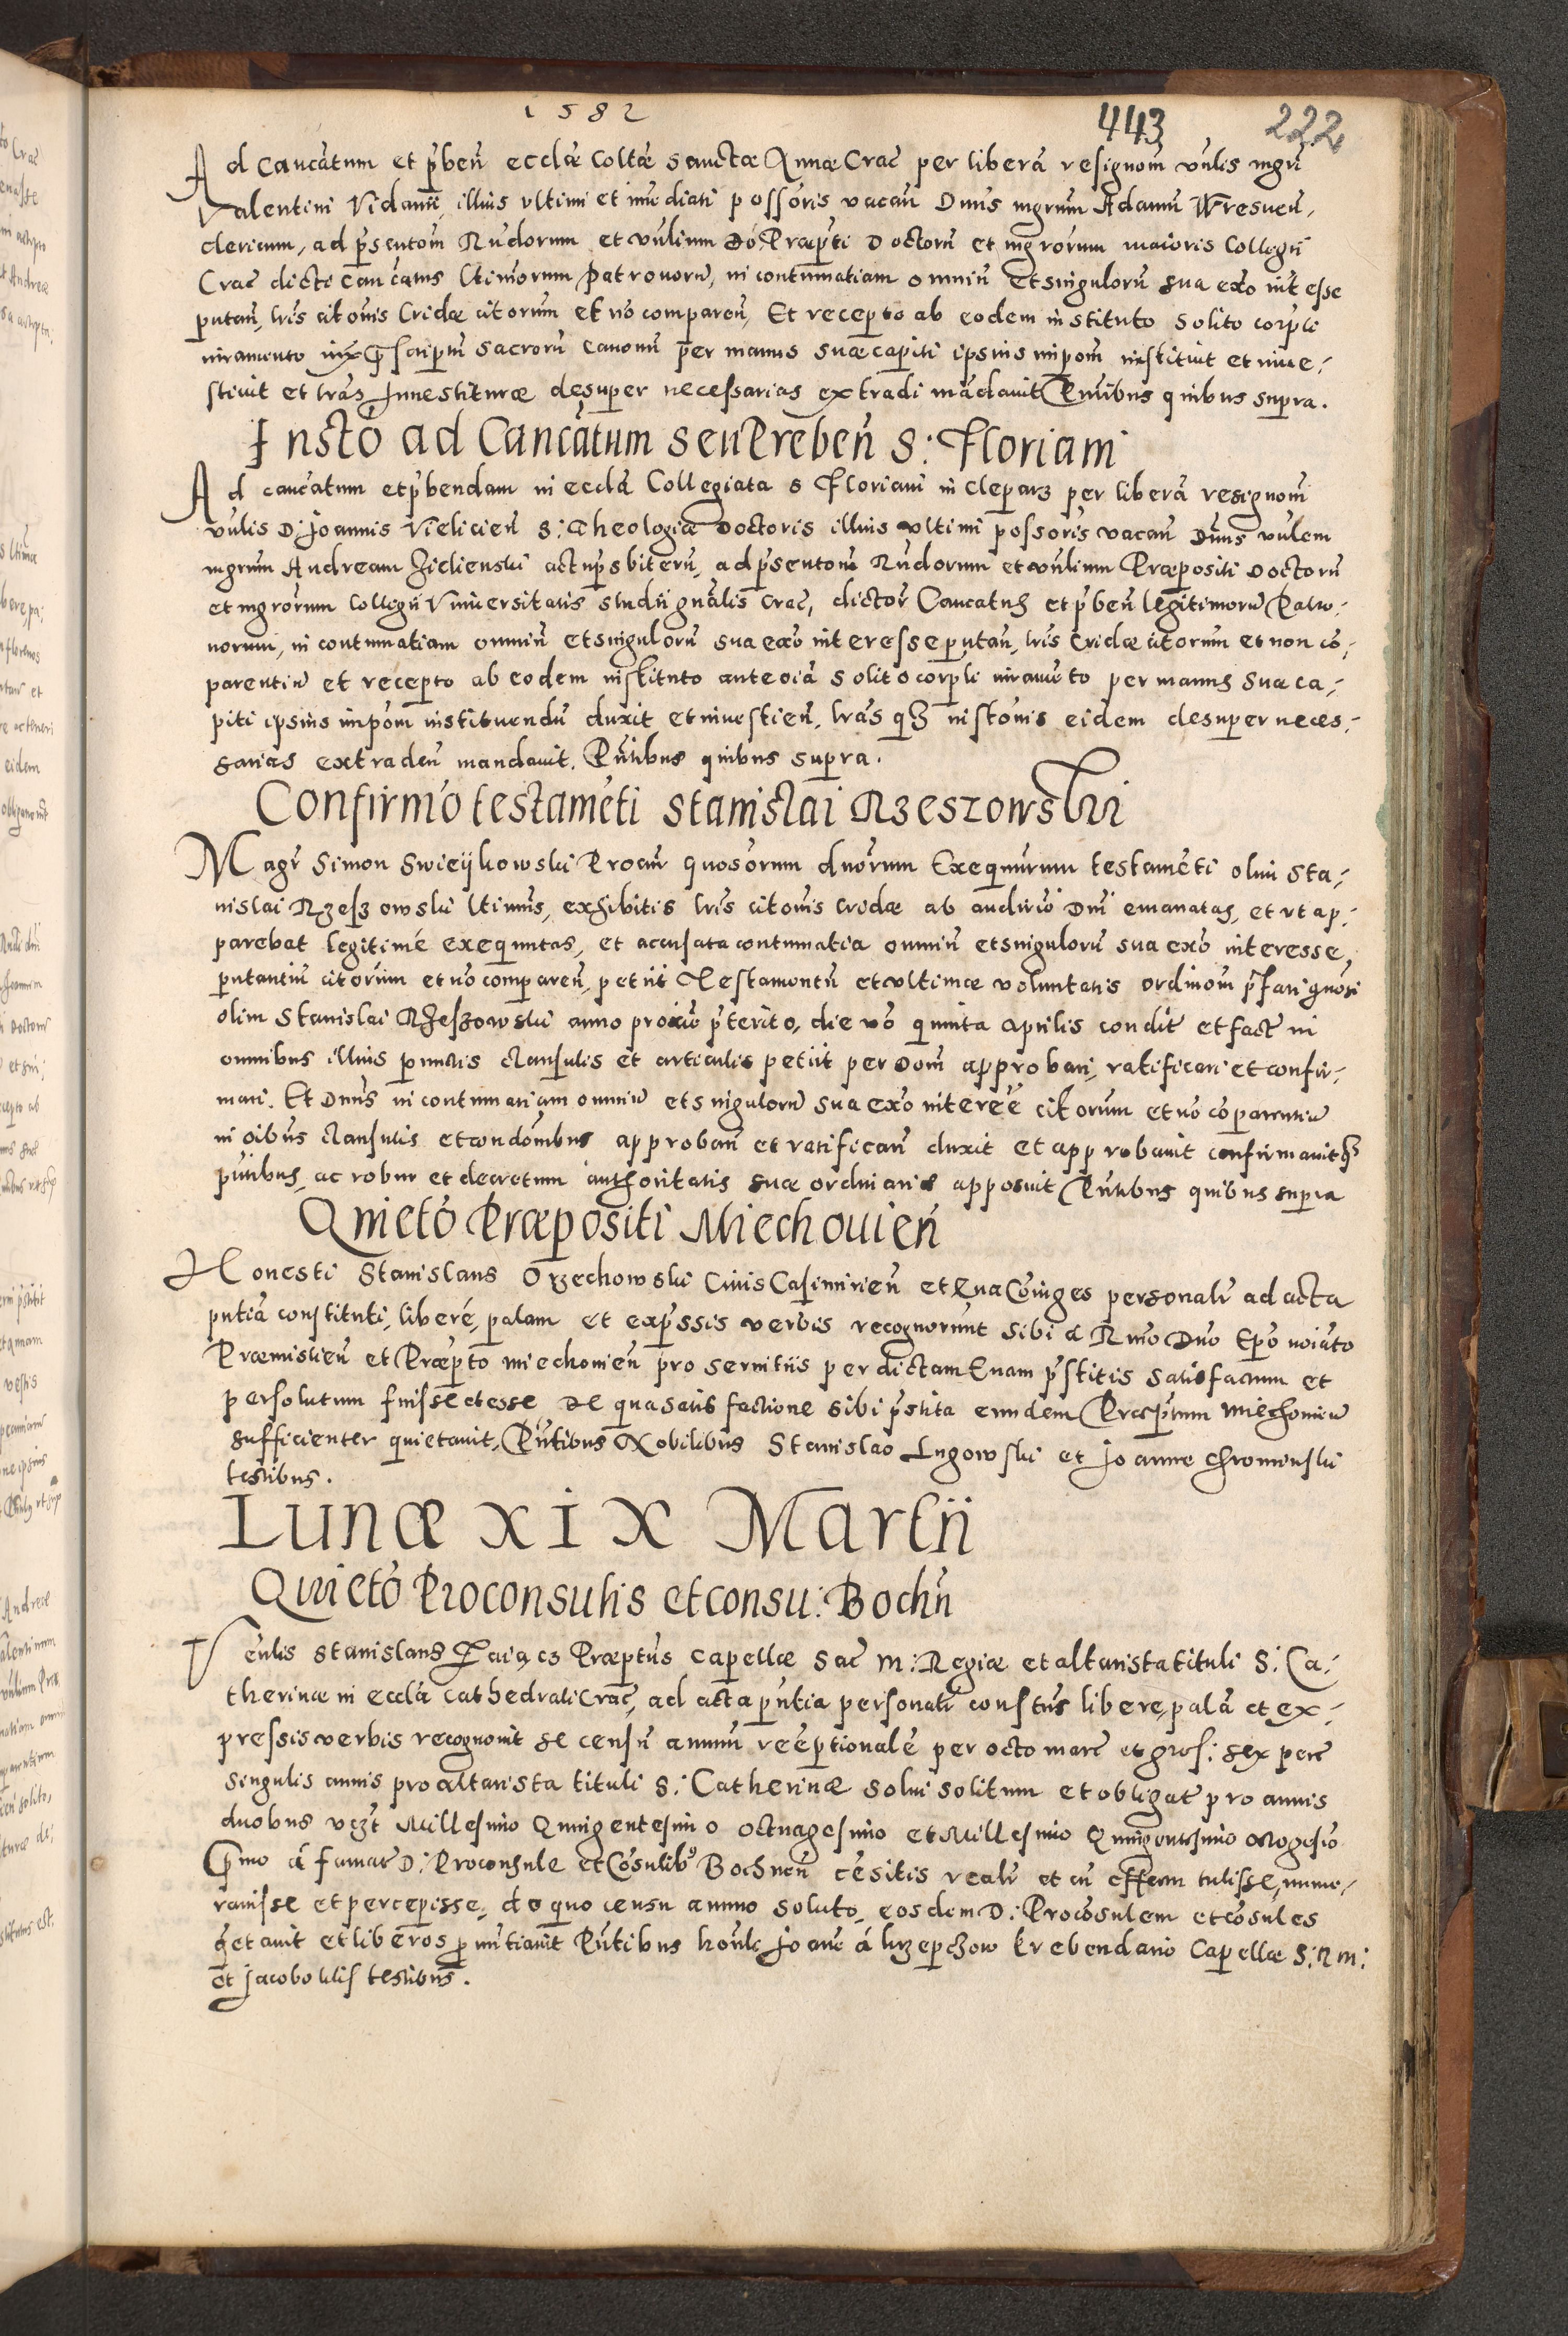 1582
443 222
Ad Cancatum et pben ecclae Coltae Sanctae Annae Crac per libera resignom vnlis mgri
Valentini Vidawie, illius vltimi et imediati possoris vacan Dnus mgrum Adamu Wresnen,
clericum, ad psentom Rndorum et vnlium Do: Praepti Doctoru et mgrorum maioris Collegii
Crac dicti Cancatus ltimorum Patronoru, in contumatiam omniu et singuloru sua exo int esse
putan, lris citonis Cridae citorum et no comparen, Et recepto ab eodem instituto solito corpli
iuramento iux pscriptu sacroru canonu per manus suae capiti ipsius impom instituit et inue-
stiuit et lras Inuestiturae desuper necessarias extradi madauit Pntibus quibus supra.
Insto ad Cancatum seu Preben S: Floriani
Ad cancatum et pbendam in eccla Collegiata S Floriani in Cleparz per libera resignom
vnlis D: Joannis Vielicien S: Theologiae Doctoris illius vltimi possoris vacan Dnus vnlem
mgrum Andream Zidienski actu psbiteru, ad psentom Rndorum et vnlium Praepositi Doctoru
et mgrorum Collegii Vniuersitatis studii gnalis Crac, dictor Cancatus et pben legitimoru Patro-
norum, in contumatiam omniu et singuloru sua exo interesse putan, lris Cridae citorum et non co-
parentiu et recepto ab eodem instituto antea solito corpli iurameto per manus suae ca-
piti ipsius impom instituendu duxit et inuestien, lras qz instonis eidem desuper neces-
sarias extraden mandauit. Pntibus quibus supra.
Confirmo testameti Stanislai Rzeszowski
Magr Simon Swieykowski Procur quosorum duorum Exequutorum testameti olim Sta-
nislai Rzeszowski ltimus, exhibitis lris citonis cridae ab audirio Dni emanatas, et vt ap-
parebat legitime exequutas, et accusata contumatia omniu et singuloru sua exo interesse,
putantiu citorum et no comparen, petiit Testamentu et vltimae voluntatis ordinom pfati gnosi
olim Stanislai Rzeszowski anno proxio pterito, die vo quinta Aprilis condit et fact in
omnibus illius punctis clausulis et articulis petiit per Dom approbari, ratificari et confir-
mari. Et Dnus in contumatiam omniu et singuloru sua exo interee citorum et no coparentiu
in oibus clausulis et condonibus approban et ratifican duxit et approbauit confirmauitqz
pntibus, ac robur et decretum authoritatis suae ordinariae apposuit Pntibus quibus supra
Quieto Praepositi Miechouien
Honesti Stanislaus Orzechowski Ciuis Casimirien et Eua Coniuges personalr ad acta
pntia constituti, libere, palam et expssis verbis recognorunt sibi a Rmo Dno Epo noiato
Praemislien et Praepto miechouien pro seruitiis per dictam Euam pstitis satisfactum et
persolutum fuisse et esse De qua satisfactione sibi pstita eundem Praeptum Miechouien
sufficienter quietauit, Pntibus Nobilibus Stanislao Lugowski et Joanne Chromenski
testibus.
Lunae XIX Martii
Quieto Proconsulis et consu: Bochn
Venlis Stanislaus Praeptus Capellae Sac M: Regiae et altarista tituli S: Ca-
therinae in eccla Cathedrali Crac, ad acta pntia personalr constus libere, pala et ex-
pressis verbis recognouit se censu annuu reeptionale per octo marc et gros: sex perc
singulis annis pro altarista tituli S: Catherinae solui solitum et obligat pro annis
duobus vczt Millesimo Quingentesimo octuagesimo et Millesimo Quingentesimo octogesio
Pmo a famat D: Proconsule et Cosulibs Bochnen cesitis realr et cu effectu tulisse, nume-
rauisse et percepisse, de quo censu annuo soluto, eosdem D: Procosulem et cosules
qetauit et liberos pnuntiauit Pntibus honli Joane a Krzepczow Prebendario Capellae S: R M:
et Jacobo testibus.